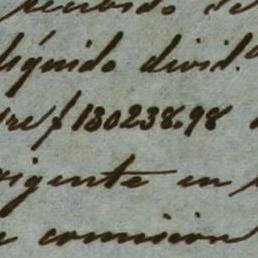 recibido de
líquido divid.º
re/ 130238.98
vigente en
comision